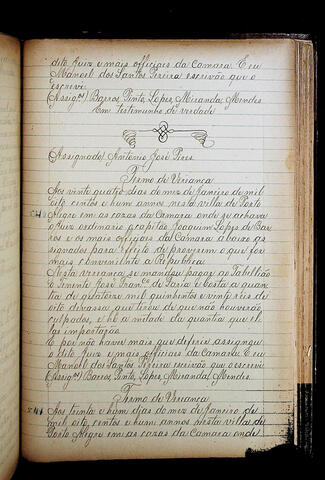 dito Juiz e mais officiaes da Camara. E eu
Manoel dos Santos Pereira escrivão que o
escrevi
(Assig.os) Barros, Pinto, Lopes, Miranda, Mendes.
Em testimunho de verdade
Assignado. Antonio José Pires.
Termo de Veriança
Aos vinte quatro dias do mez de Janeiro de mil
oito centos e hum annos nesta villa de Porto
Alegre em as cazas da Camara onde se achava
o Juiz ordinario o capitão Joaquim Lopes de Bar-
ros e os mais officiaes da Camara abaixo as-
signados para effeito de proverem o que for
mais conveniente a Republica
Nesta veriança se mandou pagar ao Tabellião
o Tenente José Fran.co de Faria e Costa a quan-
tia de quatorze mil quinhentos e vinte réis de
oito que tirou de que não houverão
culpados, e he a metade da quantia que el-
las importação.
E por não haver mais que deferir assignou
o dito Juiz e mais officiaes da Camara. E eu
Manoel dos Santos Pereira escrivão que o escrevi
(Assig.os) Barros, Pinto, Lopes, Miranda, Mendes.
Termo de Veriança
Aos trinta e hum dias do mez de Janeiro de
mil oito centos e hum annos nesta villa de
Porto Alegre em as cazas da Camara onde